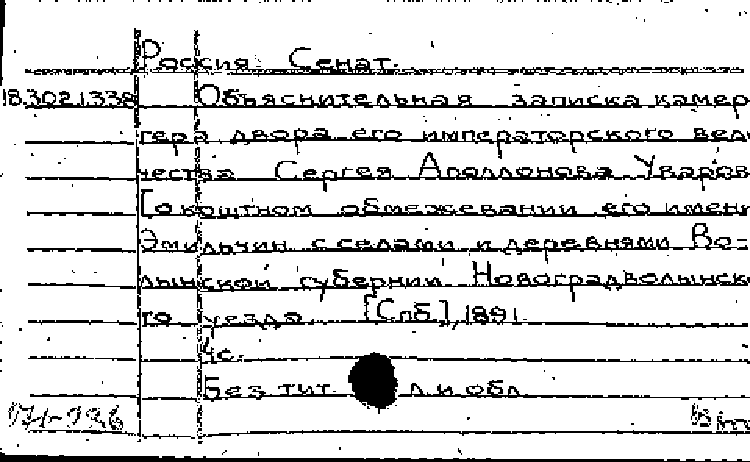 Россия. Сенат.
18.302.1.338 Объяснительная записка камер
гера двора его императорского вели
чества Сергея Аполлонова Уваров
[о коштном обмежевании его имени
Эмильчин с селами и деревнями Во-
лынской губернии Новоградволынско
го уезда. [Спб], 1891.
4с.
Без тит. л. и обл.